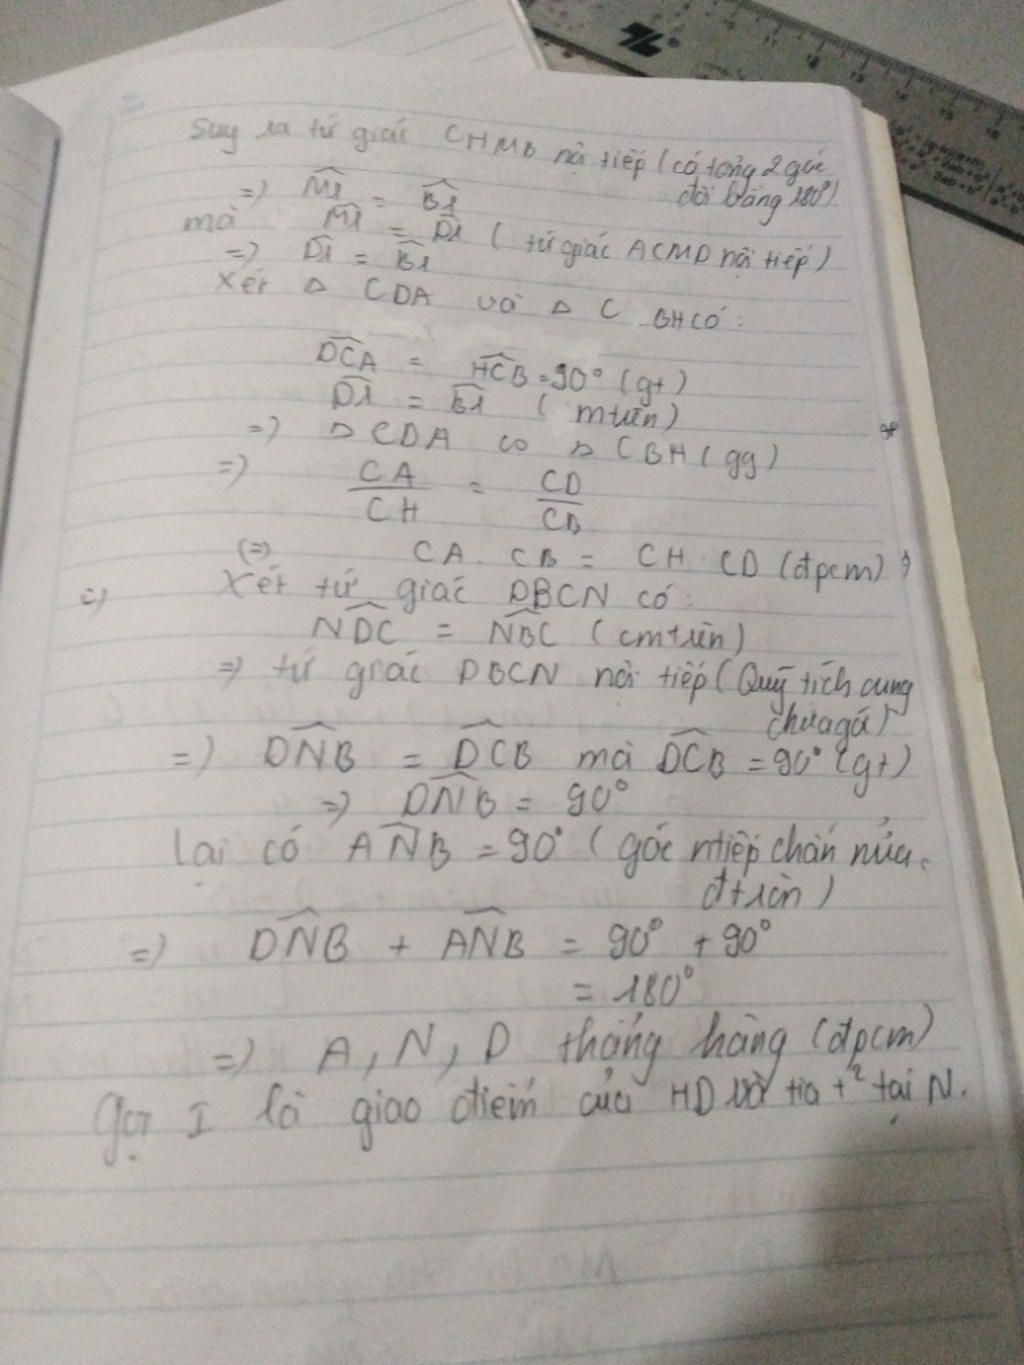 Suy ra tứ giác CHMB nội tiếp (có tổng 2 góc
đối bằng 180°)
=) M1 = B1
mà M1 = D1 ( tứ giác ACMD nội tiếp)
=) D1 = B1
Xét △ CDA và △ C BH có :
DCA = HCB = 90° (gt)
D1 = B1 ( mtrên)
=) △ CDA ∽ △ CBH ( gg)
=) CA/CH = CD/CB
(=) CA . CB = CH . CD (đpcm)
c) Xét tứ giác DBCN có :
NDC = NBC ( cmtrên)
=) tứ giác DBCN nội tiếp ( Quỹ tích cung
chứa gó)
=) DNB = DCB mà DCB = 90° (gt)
=) DNB = 90°
lại có ANB = 90° ( góc ntiếp chắn nửa
đtròn )
=) DNB + ANB = 90° + 90°
= 180°
=) A, N, D thẳng hàng (đpcm)
Gọi I là giao điểm của HD với tia t² tại N.